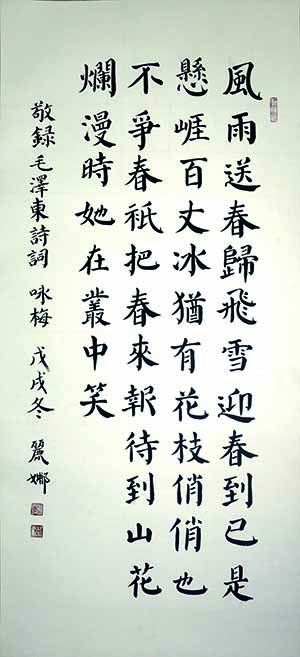 風雨送春歸飛雪迎春到已是
懸崕百丈冰猶有花枝俏俏也
不爭春祇把春來報待到山花
爛漫時她在叢中笑
敬録毛澤東詩詞 咏梅 戊戌冬 麗娜